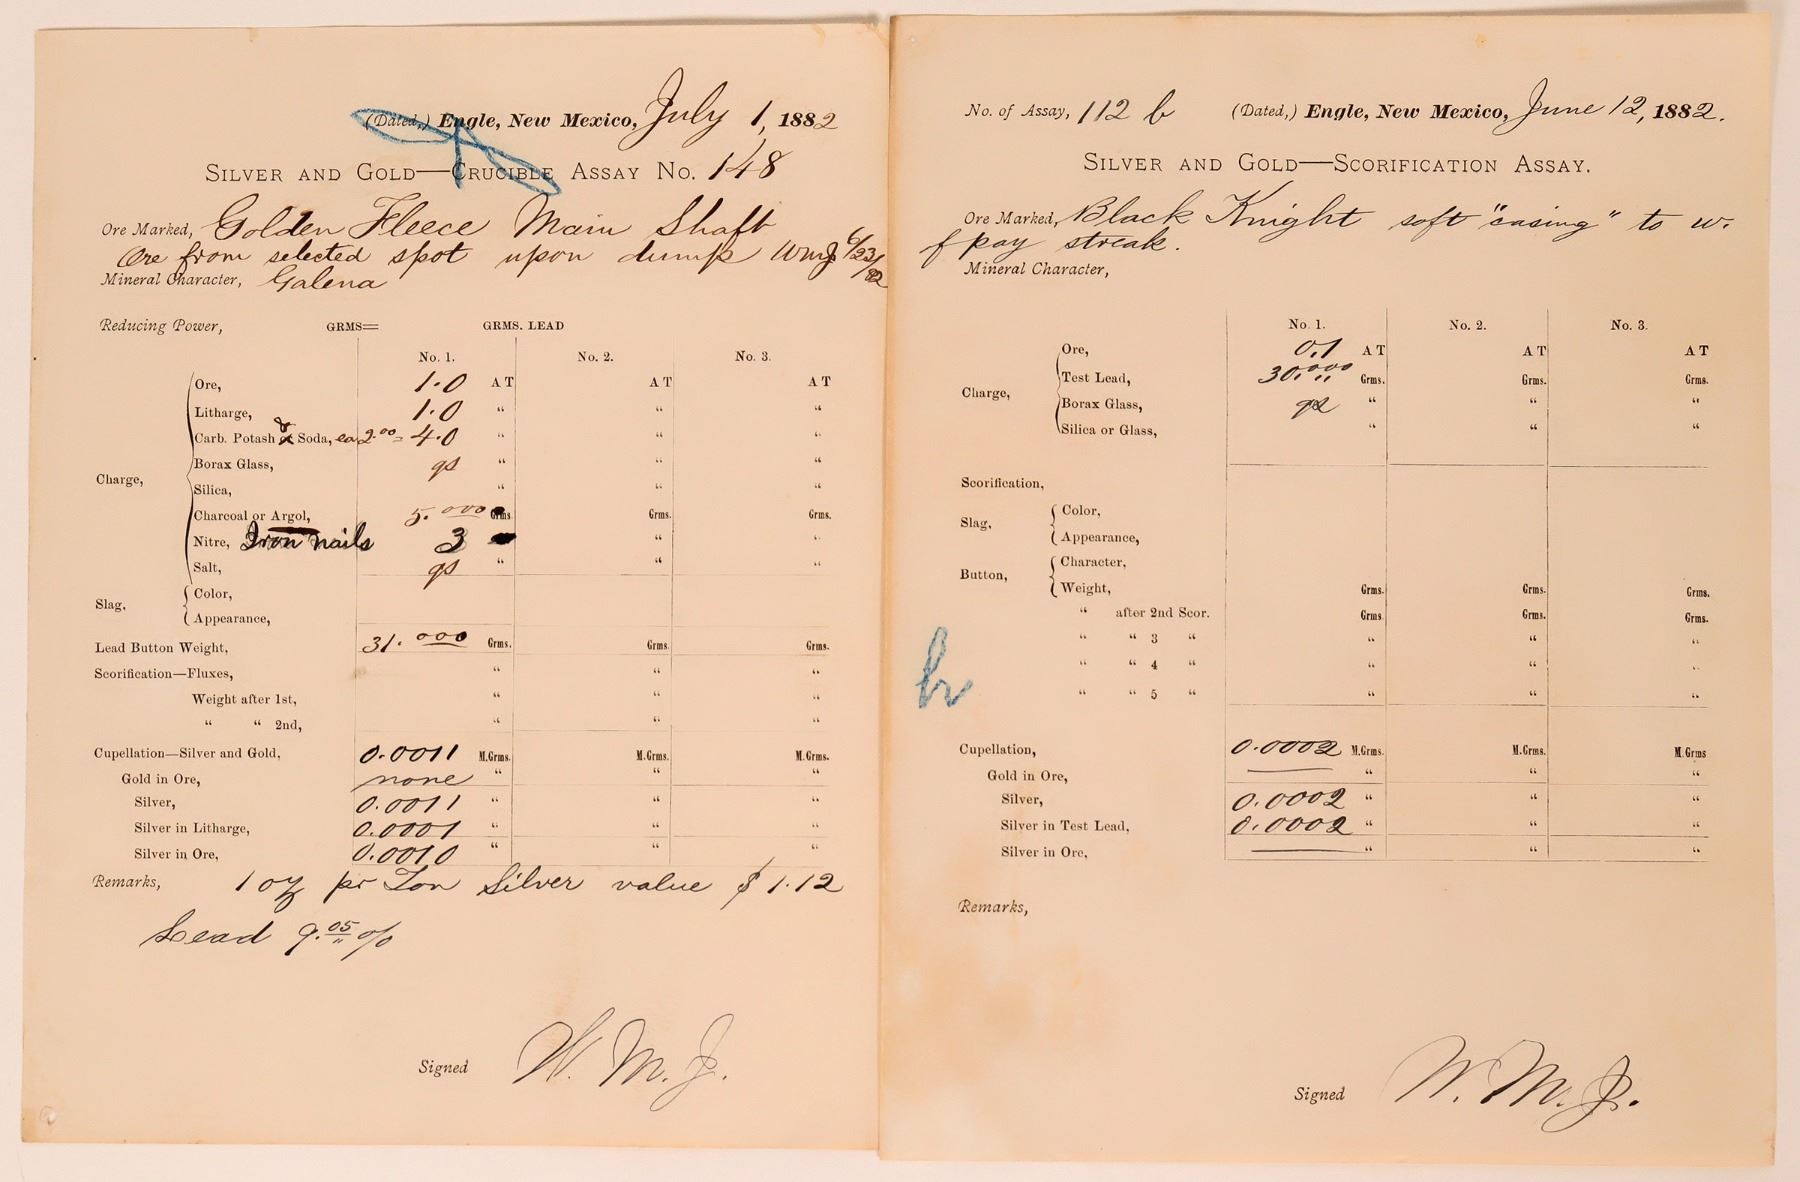 (Dated,) Engle, New Mexico, July 1, 1882
SILVER AND GOLD—CRUCIBLE ASSAY No. 148
Ore Marked, Golden Fleece Main Shaft
Ore from selected spot upon dump WMJ 6/23/82
Mineral Character, Galena
Reducing Power, GRMS= GRMS. LEAD
No. 1. No. 2. No. 3.
Charge,
Ore, 1.0 A T A T A T
Litharge, 1.0 " " "
Carb. Potash & Soda, ea 2.00 = 4.0 " " "
Borax Glass, qs " " "
Silica, " " "
Charcoal or Argol, 5.000 Grms. Grms. Grms.
Nitre, Iron nails 3 " "
Salt, qs " " "
Slag,
Color,
Appearance,
Lead Button Weight, 31.000 Grms. Grms. Grms.
Scorification—Fluxes, " " "
Weight after 1st, " " "
" " 2nd, " " "
Cupellation—Silver and Gold, 0.0011 M.Grms. M.Grms. M.Grms.
Gold in Ore, none " " "
Silver, 0.0011 " " "
Silver in Litharge, 0.0001 " " "
Silver in Ore, 0.0010 " " "
Remarks, 1 oz pr Ton Silver value $1.12
Lead 9.05 %
Signed W. M. J.
No. of Assay, 112 b (Dated,) Engle, New Mexico, June 12, 1882.
SILVER AND GOLD—SCORIFICATION ASSAY.
Ore Marked, Black Knight soft "casing" to w.
of pay streak.
Mineral Character,
No. 1. No. 2. No. 3.
Charge,
Ore, 0.1 A T A T A T
Test Lead, 30.000 Grms. Grms. Grms.
Borax Glass, qs " " "
Silica or Glass, " " "
Scorification,
Slag,
Color,
Appearance,
Button,
Character,
Weight, Grms. Grms. Grms.
" after 2nd Scor. Grms. Grms. Grms.
" " 3 " " " "
" " 4 " " " "
" " 5 " " " "
Cupellation, 0.0002 M.Grms. M.Grms. M.Grms
Gold in Ore, " " "
Silver, 0.0002 " " "
Silver in Test Lead, 0.0002 " " "
Silver in Ore, " " "
Remarks,
Signed W. M. J.